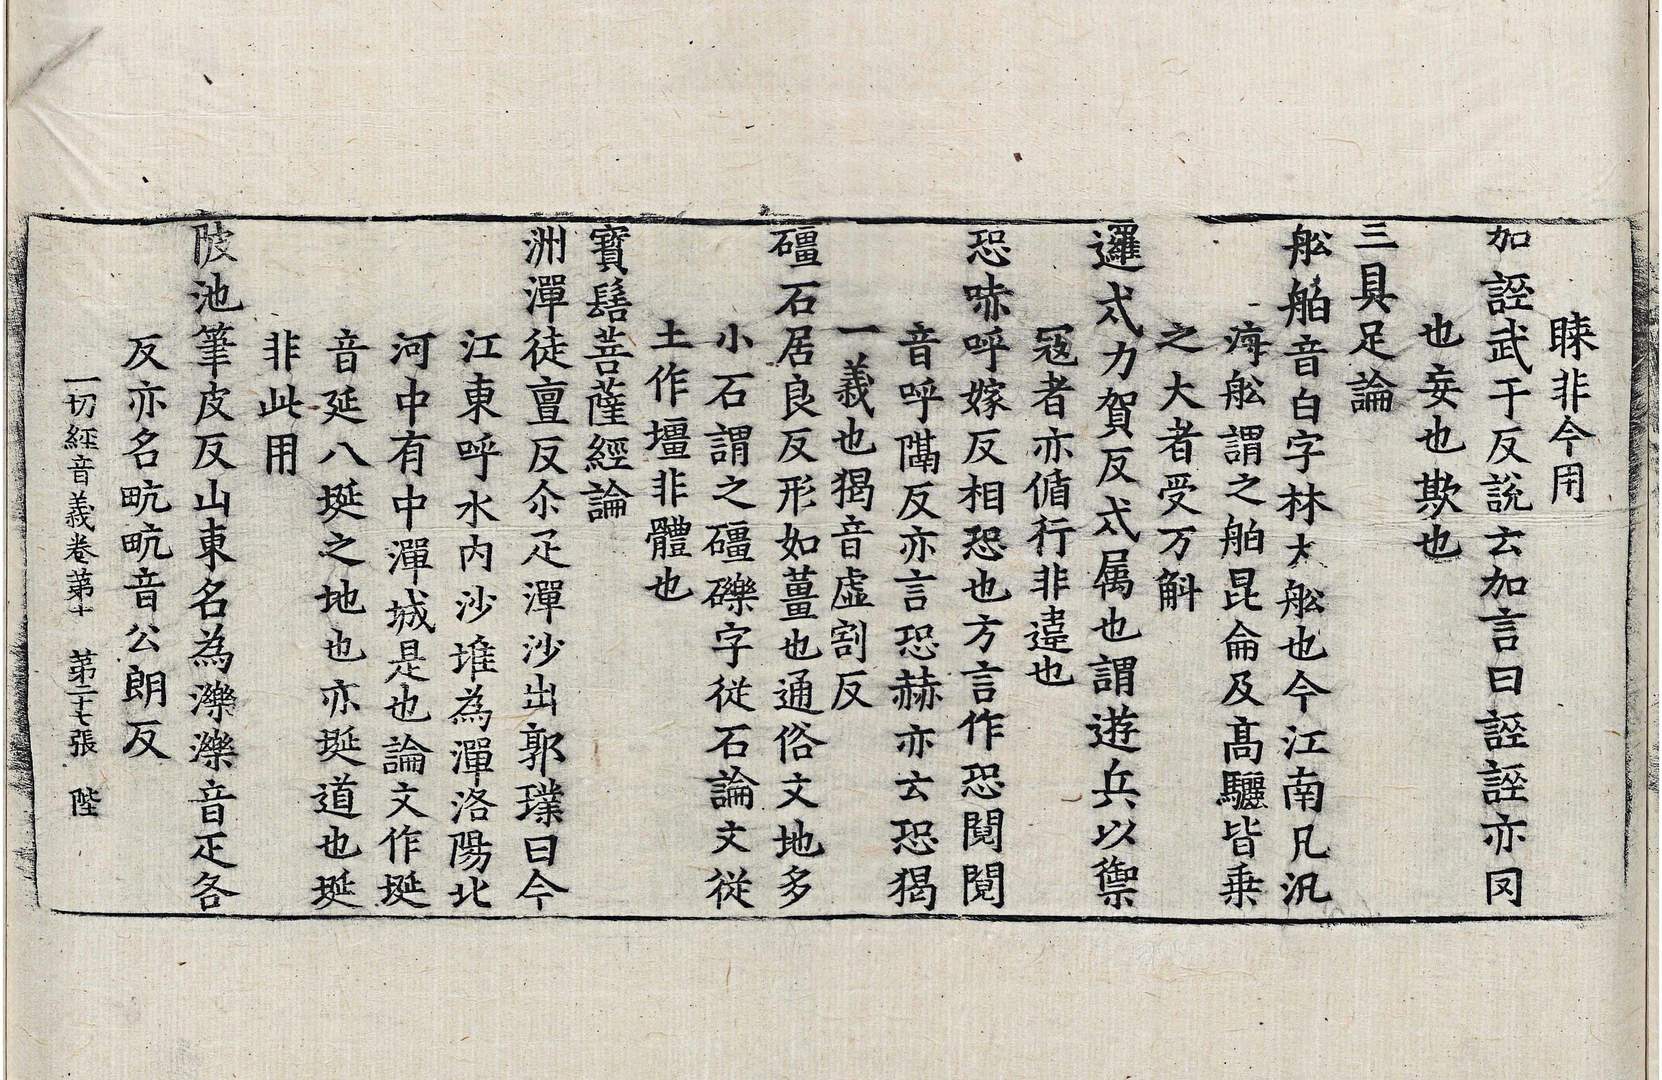 睞非今用
加誣武于反說云加言曰誣誣亦同
也妄也欺也
三具足論
舩舶音白字林大舩也今江南凡汎
海舩謂之舶昆侖及髙驪皆乗
之大者受万斛
邏忒力賀反忒属也謂遊兵以禦
寇者亦循行非違也
恐哧呼嫁反相恐也方言作恐鬩鬩
音呼隔反亦言恐赫亦云恐猲
一義也猲音虛割反
礓石居良反形如薑也通俗文地多
小石謂之礓礫字従石論文従
土作壃非體也
寶髻菩薩經論
洲潬徒亶反尒疋潬沙出郭璞曰今
江東呼水内沙堆為潬洛陽北
河中有中潬城是也論文作埏
音延八埏之地也亦埏道也埏
非此用
陂池筆皮反山東名為濼濼音疋各
反亦名𤱟𤱟音公朗反
一切經音義卷第十 第二十七張 陛